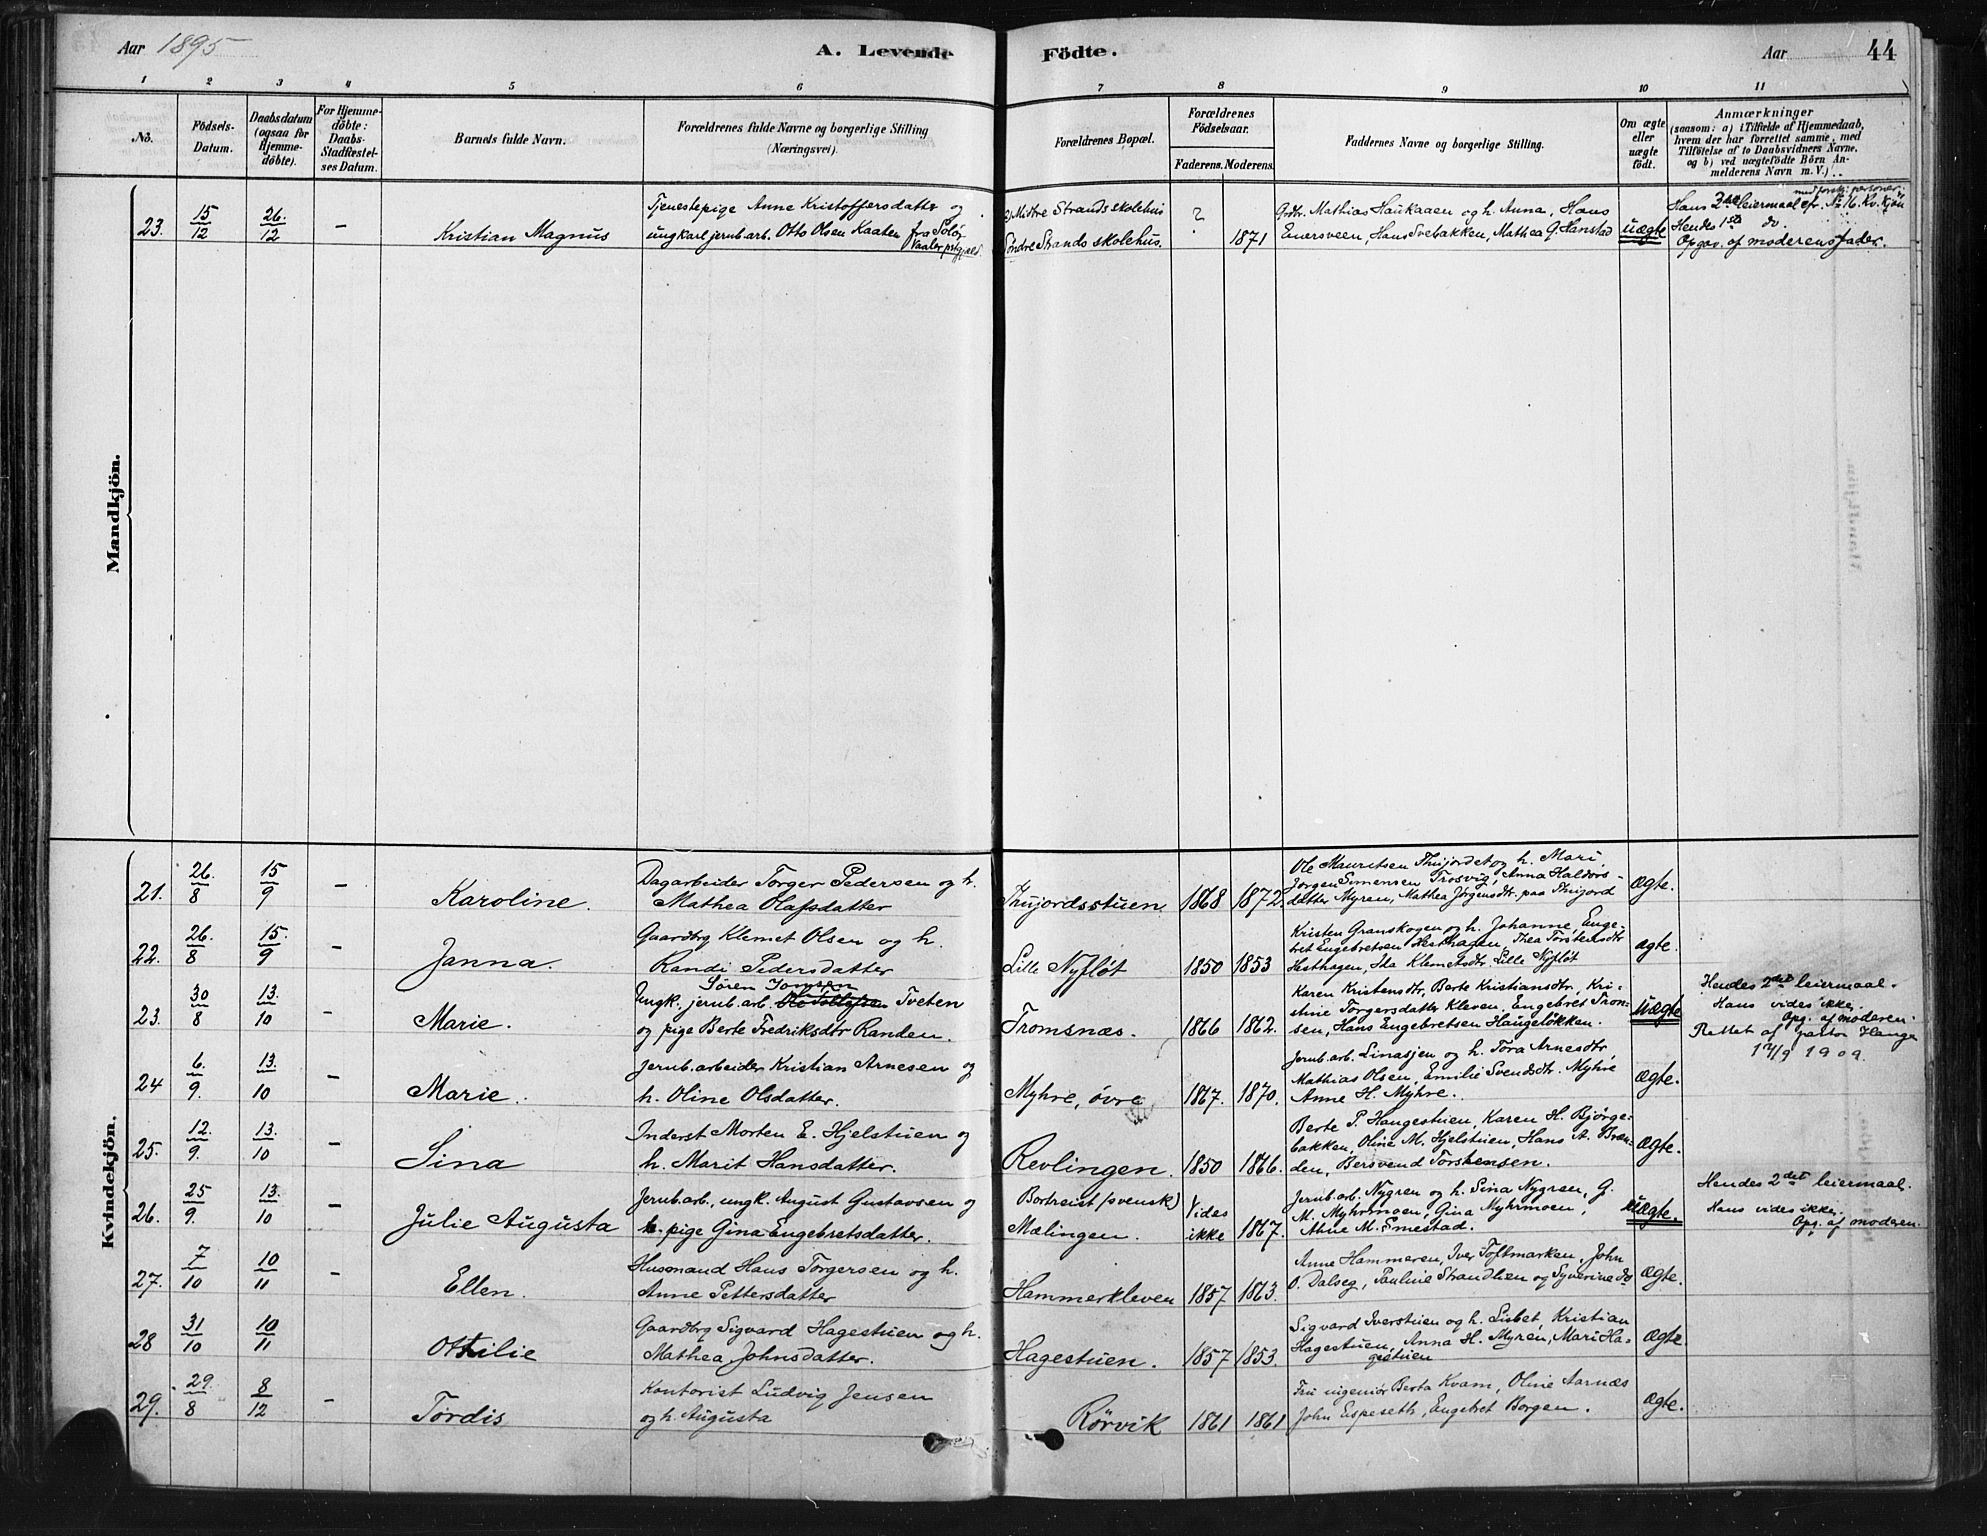 Aar 1895
A. Levende Födte.
Aar
44
1 2 3 4 5 6 7 8 9 10 11
No.
Födsels-Datum.
Daabsdatum (ogsaa for Hjemme-döbte).
For Hjemme-döbte: Daabs-Stadfæstel-ses Datum.
Barnets fulde Navn.
Forældrenes fulde Navne og borgerlige Stilling (Næringsvei).
Forældrenes Bopæl.
Forældrenes Födselsaar.
Faderens. Moderens.
Faddernes Navne og borgerlige Stilling.
Om ægte eller uægte födt.
Anmærkninger
(saasom: a) i Tilfælde af Hjemmedaab,
hvem der har forrettet samme, med
Tilföielse af to Daabsvidners Navne,
og b) ved uægtefödte Börn An-
melderens Navn m. V.)
Mandkjön.
23. 15/12 26./12 – Kristian Magnus
Tjenestepige Anne Kristoffersdatter og
ungkarl jernb.arb. Otto Olsen Kaaten fra Solør
Vaaler prgjæld.
Midtre Strands skolehus
Søndre Strands skolehus.
? 1871
Grdbr. Mathias Haukaaen og h. Anna, Hans
Enersveen, Hans Svebakken, Mathea G. Hanstad
uægte
med forskj. personer.
Hans 2det leiermaal cfr. No 16. Kv. kjøn
Hendes 1ste do.
Opgav. af moderens fader.
Kvindekjön.
21. 26./8 15/9 – Karoline.
Dagarbeider Torger Pedersen og h.
Mathea Olafsdatter
Thujordsstuen 1868 1872.
Ole Mauritsen Thujordet og h. Mari,
Jørgen Simensen Trosvig, Anna Haldors-
datter Myren, Mathea Jørgensdtr. paa Thujord
Ægte.
22. 26./8 15./9 – Janna.
Gaardbrg Klemet Olsen og h.
Randi Pedersdatter
Lille Nyfløt 1850 1853
Kristen Granskogen og h. Johanne, Enge-
bret Engebretsen Hesthagen, Thea Torstensdtr
Hesthagen, Ida Klemetsdtr. Lille Nyfløt
Ægte.
23. 30/8 13./10 – Marie.
Søren Jonsen
Ungk. jernb.arb. Tveten
og pige Berte Fredriksdtr Randen.
Tromsnæs. 1866 1862.
Karen Kristensdtr, Berte Kristiansdtr, Kri-
stine Torgersdatter Kleven, Engebret Tron-
sen, Hans Engebretsen Haugeløkken.
Uægte
Hendes 2det leiermaal.
Hans vides ikke.
Opg. af moderen.
Rettet af pastor Hauge
17/9 1909.
24 6./9. 13./10 – Marie.
Jernb.arbeider Kristian Arnesen og
h. Oline Olsdatter.
Myhre, øvre 1867. 1870.
Jernb.arb. Linasjen og h. Tora Arnesdtr,
Mathias Olsen, Emilie Svendsdtr. Myhre
Anne H. Myhre.
Ægte.
25. 12./9. 13./10 – Sina
Inderst Morten E. Hjelstuen og
h. Marit Hansdatter.
Revlingen. 1850 1866.
Berte P. Haugestuen, Karen H. Bjørge-
bakken, Oline M. Hjelstuen, Hans A. Bræn-
den, Bersvend Torstensen.
Ægte.
26. 25/9. 13./10 – Julie Augusta
Jernb.arb., ungk. August Gustavsen og
pige Gina Engebretsdatter.
Bortreist (svensk)
Mælingen.
Vides ikke 1867.
Jernb.arb. Nygren og h. Sina Nygren, G.
M. Myhrmoen, Gina Myhrmoen,
Anne M. Emestad.
Uægte.
Hendes 2det leiermaal.
Hans vides ikke.
Opg. af moderen.
27. 7/10 10/11 – Ellen.
Husmand Hans Torgersen og h.
Anne Pettersdatter
Hammerkleven 1857 1863.
Anne Hammeren, Iver Toftmarken, John
O. Dalseg, Pauline Strandlien og Syverine do
Ægte.
28 31/10 10/11 Ottilie
Gaardbrg Sigvard Hagestuen og h.
Mathea Johnsdatter.
Hagestuen. 1857 1853.
Sigvard Iverstuen og h. Lisbet, Kristian
Hagestuen, Anna H. Myren, Mari Ha-
gestuen
Ægte.
29. 29./8 8/12 – Tordis
Kontorist Ludvig Jensen
og h. Augusta
Rørvik 1861 1861
Fru ingeniør Berta Kvam, Oline Aarnæs
John Espeseth, Engebret Borgen.
Ægte.